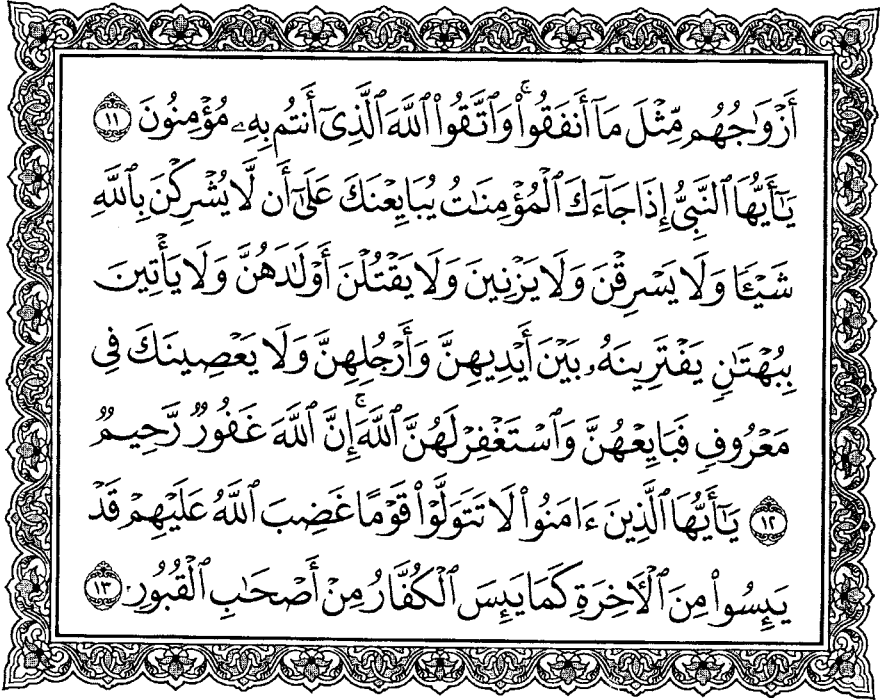 أَزۡوَٰجُهُم مِّثۡلَ مَآ أَنفَقُواْۚ وَٱتَّقُواْ ٱللَّهَ ٱلَّذِيٓ أَنتُم بِهِۦ مُؤۡمِنُونَ ١١
يَٰٓأَيُّهَا ٱلنَّبِيُّ إِذَا جَآءَكَ ٱلۡمُؤۡمِنَٰتُ يُبَايِعۡنَكَ عَلَىٰٓ أَن لَّا يُشۡرِكۡنَ بِٱللَّهِ
شَيۡـٔٗا وَلَا يَسۡرِقۡنَ وَلَا يَزۡنِينَ وَلَا يَقۡتُلۡنَ أَوۡلَٰدَهُنَّ وَلَا يَأۡتِينَ
بِبُهۡتَٰنٖ يَفۡتَرِينَهُۥ بَيۡنَ أَيۡدِيهِنَّ وَأَرۡجُلِهِنَّ وَلَا يَعۡصِينَكَ فِي
مَعۡرُوفٖ فَبَايِعۡهُنَّ وَٱسۡتَغۡفِرۡ لَهُنَّ ٱللَّهَۚ إِنَّ ٱللَّهَ غَفُورٞ رَّحِيمٞ
١٢ يَٰٓأَيُّهَا ٱلَّذِينَ ءَامَنُواْ لَا تَتَوَلَّوۡاْ قَوۡمًا غَضِبَ ٱللَّهُ عَلَيۡهِمۡ قَدۡ
يَئِسُواْ مِنَ ٱلۡأٓخِرَةِ كَمَا يَئِسَ ٱلۡكُفَّارُ مِنۡ أَصۡحَٰبِ ٱلۡقُبُورِ ١٣